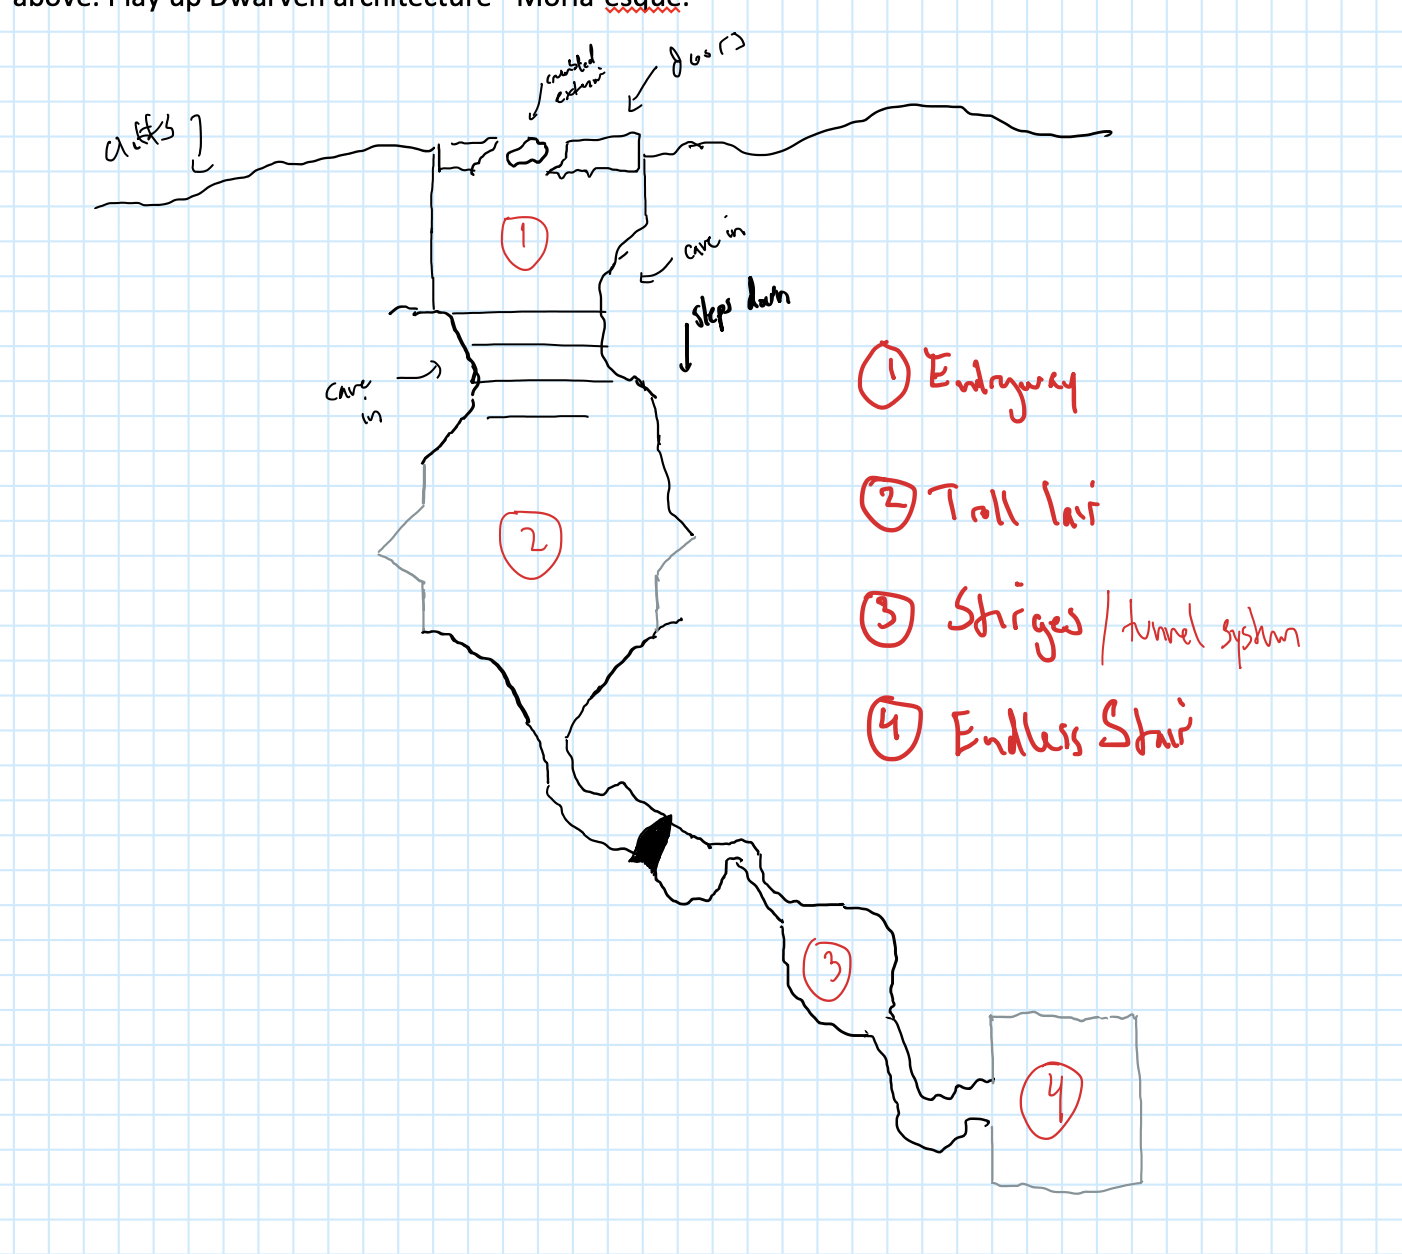 above. Play up Dwarven architecture - Moria-esque.
crumbled
exterior
doors
cliffs
cave in
steps down
cave
in
1
2
3
4
1 Entryway
2 Troll lair
3 Stirges / tunnel system
4 Endless Stair